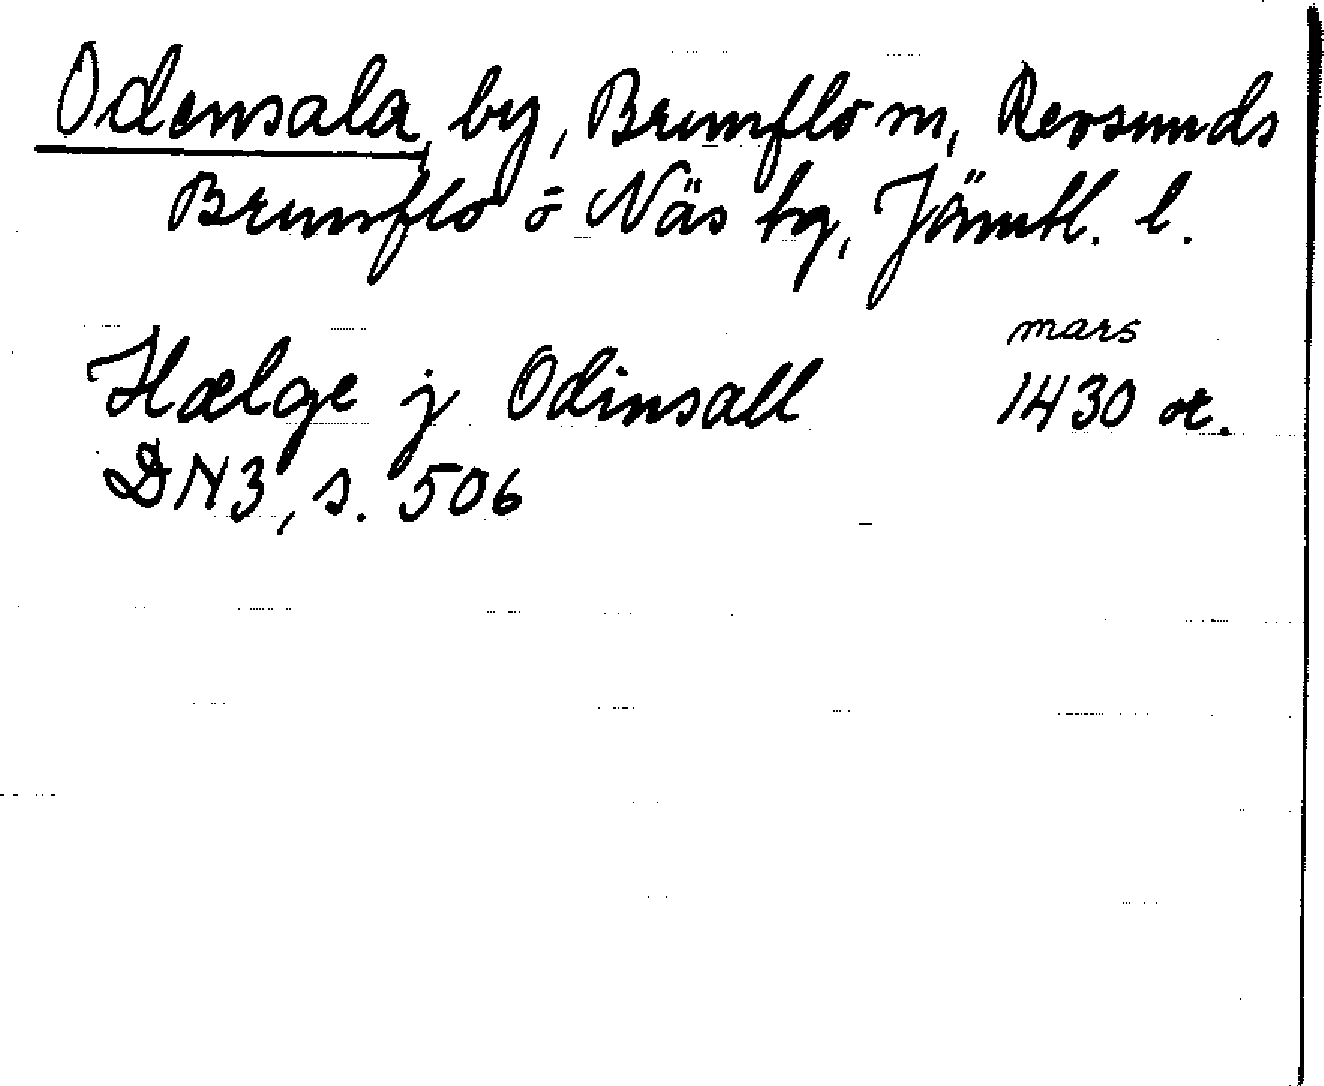 Odensala by, Brunflo sn, Revsunds
Brunflo o Näs tg, Jämtl. l.
mars
Hælge j Odinsall 1430 or.
DN3, s. 506